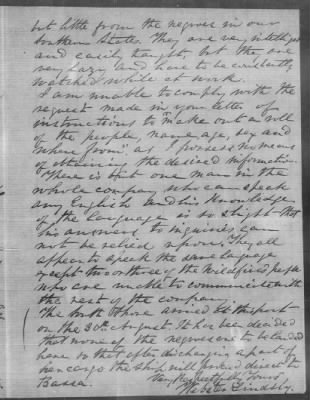 but little from the negroes in our
Southern States. They are very intelligent
and easily taught, but the are
very lazy and have to be constantly
watched while at work.
I am unable to comply with the
request made in your letter of
instructions to "make out a roll
of the people, name, age, sex and
where from" as I possess no means
of obtaining the desired information.
There is but one man in the
whole company who can speak
any English and his knowledge
of the language is so slight that
his answers to inquiries can
not be relied upon. They all
appear to speak the same language
except two or three of the
who are unable to communicate with
the rest of the company.
The arrived at this port
on the 30th August. It has been decided
that none of the negroes are to be landed
here so that after discharging a part of
her cargo the ship will proceed direct to
Bassa.
Very Respectfully Yours
Webster Lindsly.